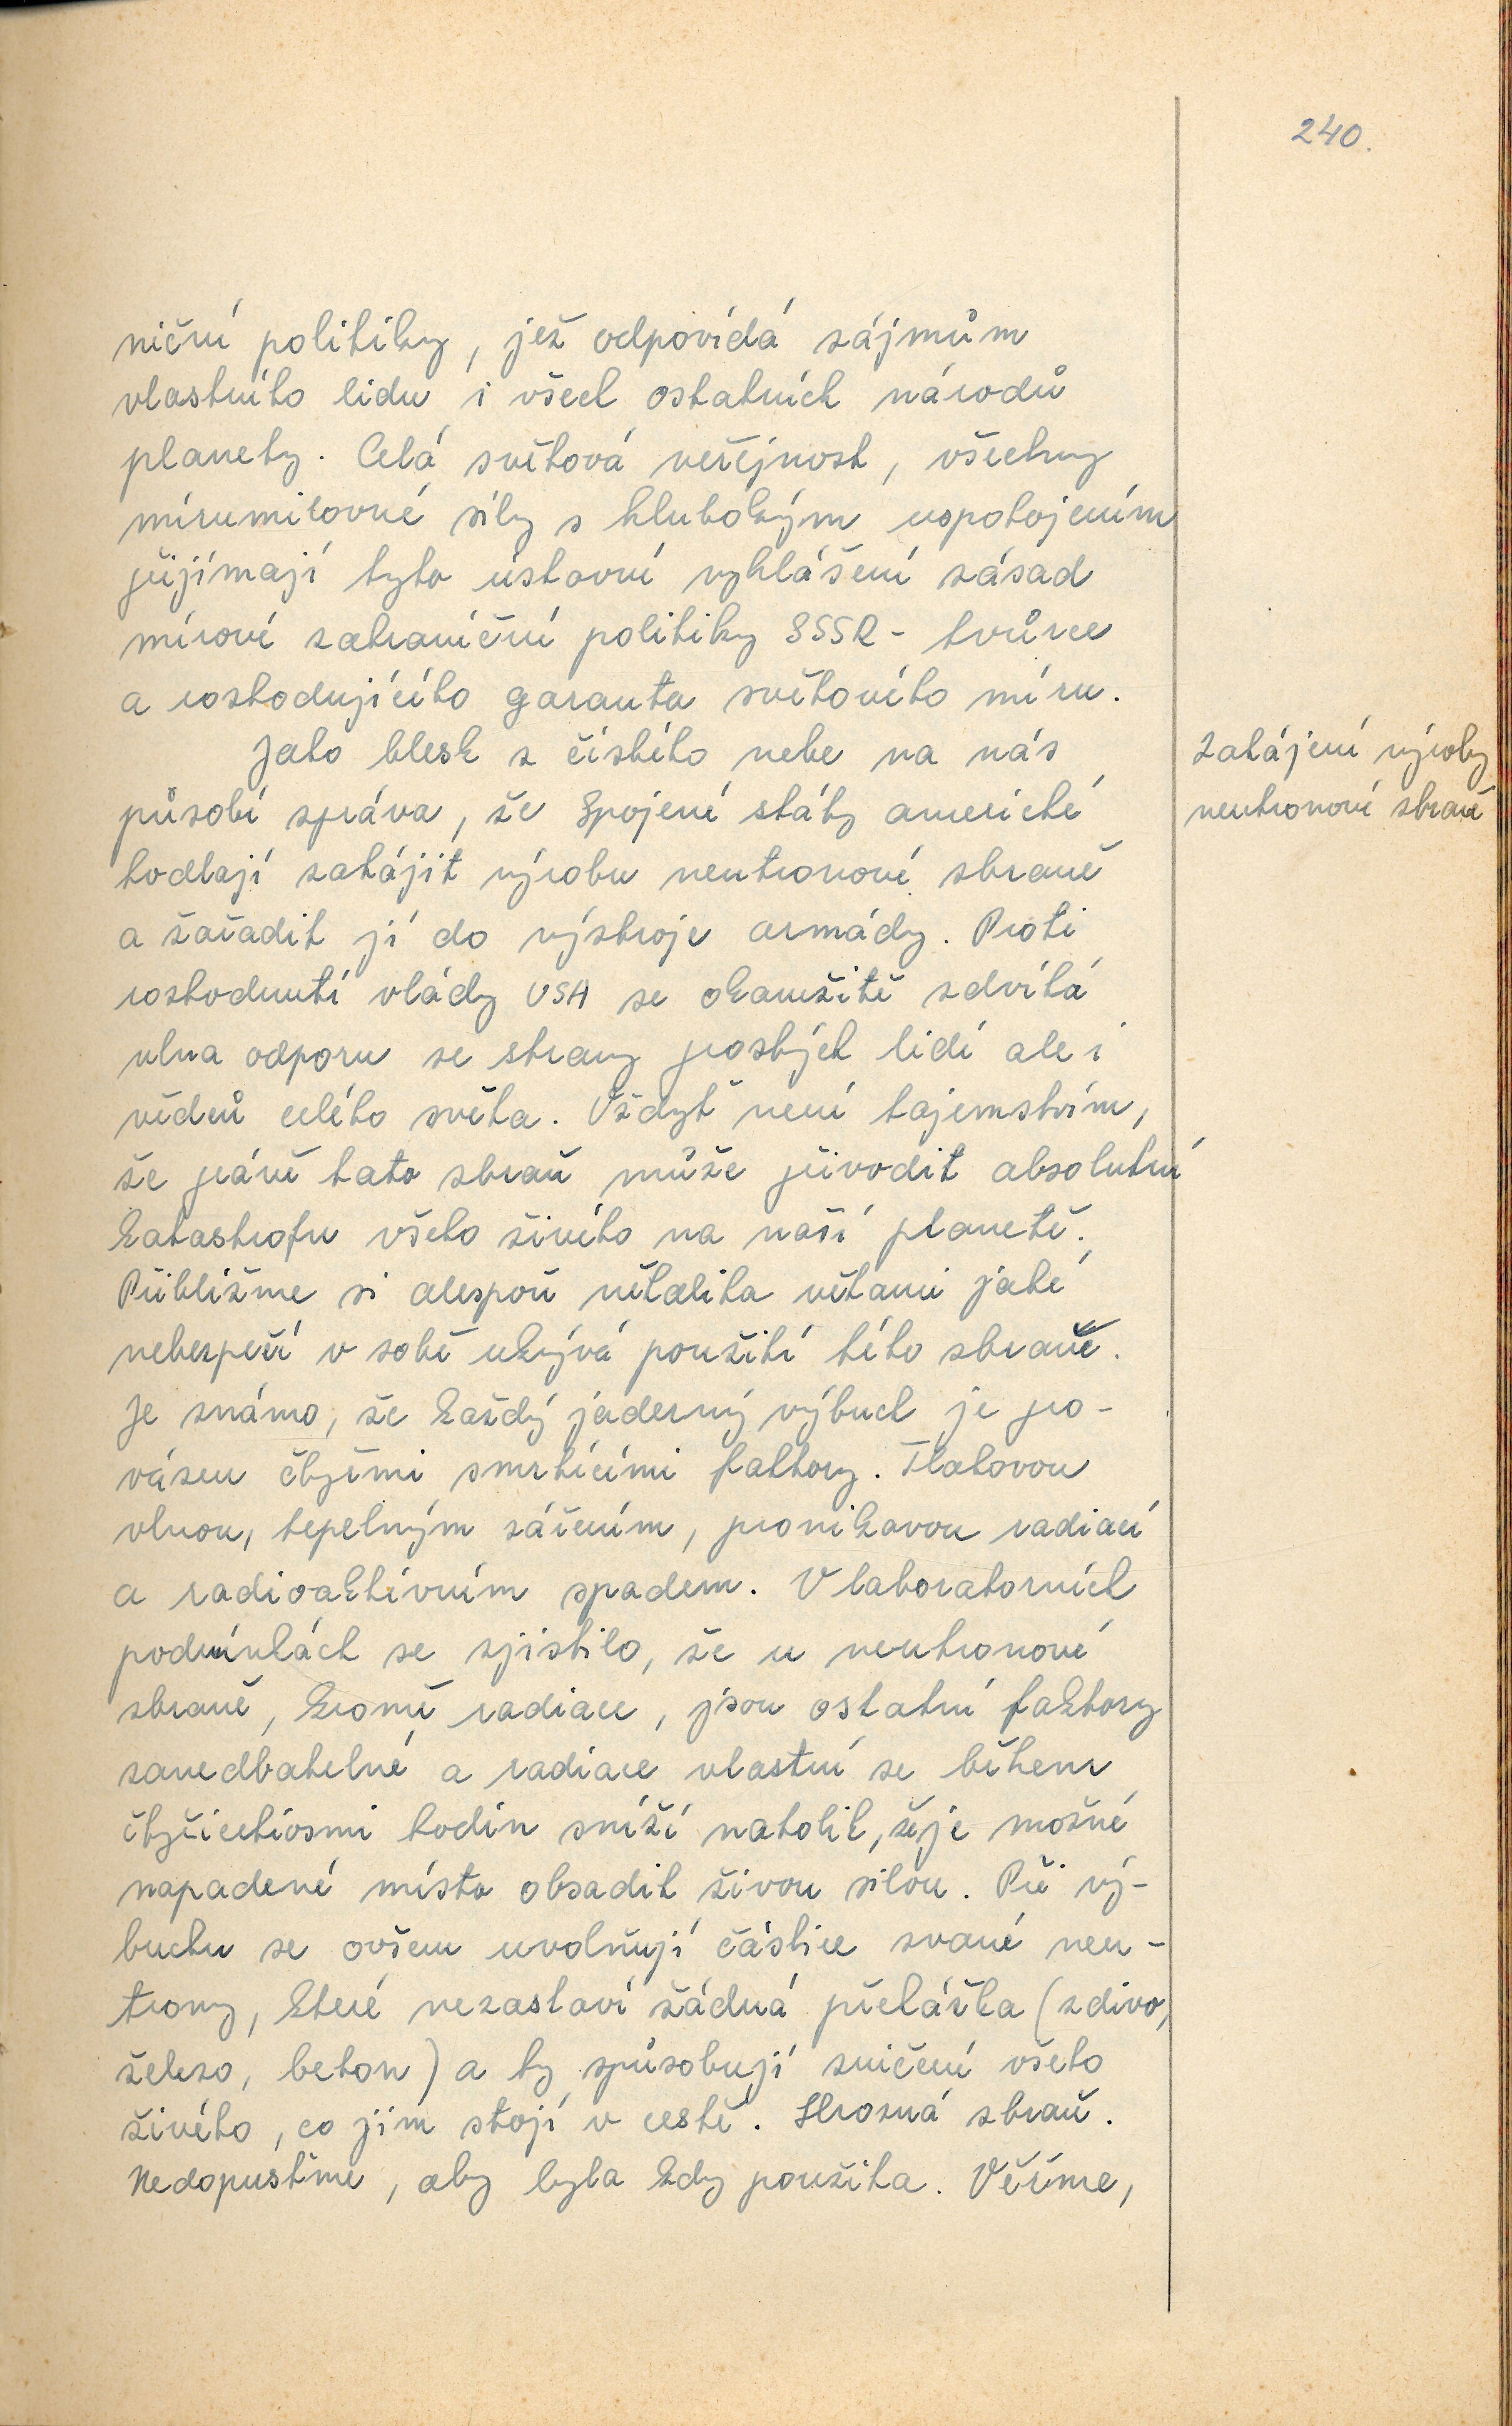 240.
niční politiky, jež odpovídá zájmům
vlastního lidu i všech ostatních národů
planety. Celá světová veřejnost, všechny
mírumilovné síly s hlubokým uspokojením
přijímají tyto ústavní vyhlášení zásad
mírové zahraniční politiky SSSR - tvůrce
a rozhodujícího garanta světového míru.
Jako blesk z čistého nebe na nás
působí zpráva, že Spojené státy americké
hodlají zahájit výrobu neutronové zbraně
a zařadit jí do výstroje armády. Proti
rozhodnutí vlády USA se okamžitě zdvíhá
vlna odporu ze strany prostých lidí ale i
vědců celého světa. Vždyť není tajemstvím,
že právě tato zbraň může přivodit absolutní
katastrofu všeho živého na naší planetě.
Přibližme si alespoň několika větami jaké
nebezpečí v sobě ukrývá použití této zbraně.
Je známo, že každý jaderný výbuch je pro-
vázen čtyřmi smrtícími faktory. Tlakovou
vlnou, tepelným zářením, pronikavou radiací
a radioaktivním spadem. V laboratorních
podmínkách se zjistilo, že u neutronové
zbraně, kromě radiace, jsou ostatní faktory
zanedbatelné a radiace vlastní se během
čtyřicetiosmi hodin sníží natolik, že je možné
napadené místo obsadit živou silou. Při vý-
buchu se ovšem uvolňují částice zvané neu-
trony, které nezastaví žádná překážka (zdivo,
železo, beton) a ty způsobují zničení všeho
živého, co jim stojí v cestě. Hrozná zbraň.
Nedopusťme, aby byla kdy použita. Věříme,
Zahájení výroby
neutronové zbraně